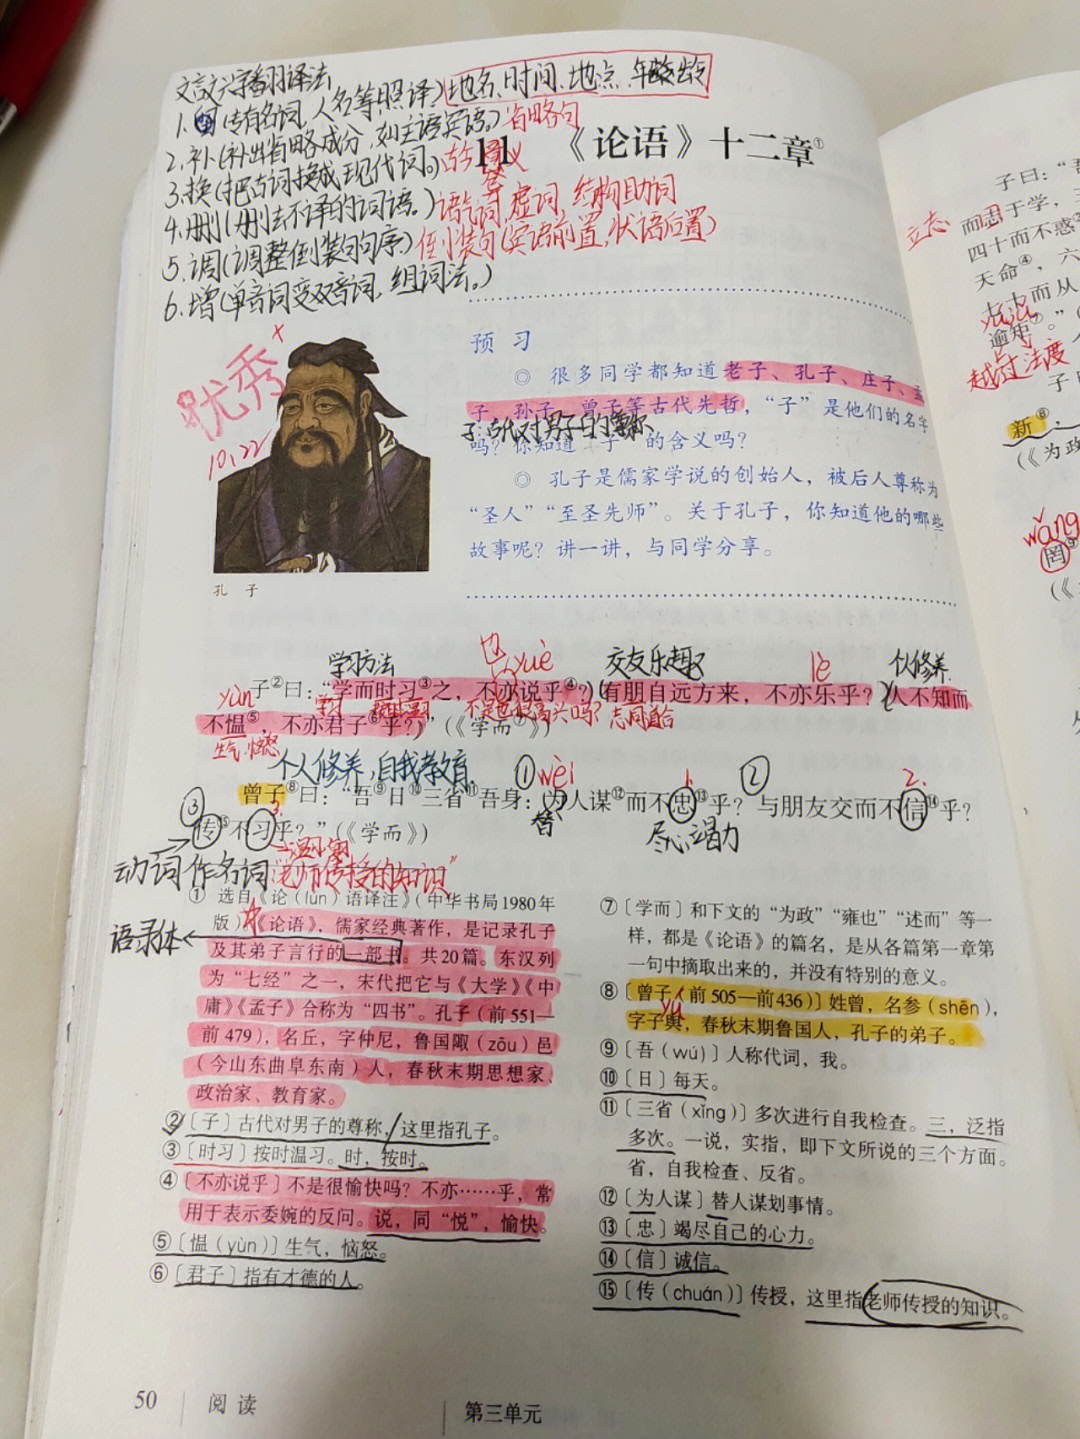 文言文字翻译法
1.留(专有名词,人名等照译)地名、时间、地点、年龄
2.补(补出省略成分,如主语宾语。)省略句
3.换(把古词换成现代词。)古今异义
4.删(删去不译的词语。)语气词,虚词,结构助词
5.调(调整倒装句句序)倒装句(宾语前置,状语后置)
6.增(单音词变双音词,组词法。)
11 《论语》十二章①
优秀
10.22
孔 子
预 习
◎ 很多同学都知道老子、孔子、庄子、孟
子、孙子、曾子等古代先哲,“子”是他们的名字
子:古代对男子的尊称
吗?你知道“子”的含义吗?
◎ 孔子是儒家学说的创始人,被后人尊称为
“圣人”“至圣先师”。关于孔子,你知道他的哪些
故事呢?讲一讲,与同学分享。
学习方法 也 yuè 交友乐趣 lè 个人修养
yùn 子②曰:“学而时习③之,不亦说乎④?有朋自远方来,不亦乐乎?人不知而
不是也很高兴吗?志同道合
不愠⑤,不亦君子⑥乎?”(《学而⑦》)
生气,恼怒
个人修养,自我教育 ① wèi 1. ② 2.
曾子⑧曰:“吾⑨日⑩三省⑪吾身:为人谋⑫而不忠⑬乎?与朋友交而不信⑭乎?
③ 3. 替 尽心竭力
传⑮不习乎?”(《学而》)
动词作名词“老师传授的知识”
语录体
① 选自《论(lún)语译注》(中华书局1980年
版)。《论语》,儒家经典著作,是记录孔子
及其弟子言行的一部书。共20篇。东汉列
为“七经”之一,宋代把它与《大学》《中
庸》《孟子》合称为“四书”。孔子(前551—
前479),名丘,字仲尼,鲁国陬(zōu)邑
(今山东曲阜东南)人,春秋末期思想家、
政治家、教育家。
②〔子〕古代对男子的尊称,这里指孔子。
③〔时习〕按时温习。时,按时。
④〔不亦说乎〕不是很愉快吗?不亦……乎,常
用于表示委婉的反问。说,同“悦”,愉快。
⑤〔愠(yùn)〕生气,恼怒。
⑥〔君子〕指有才德的人。
⑦〔学而〕和下文的“为政”“雍也”“述而”等一
样,都是《论语》的篇名,是从各篇第一章第
一句中摘取出来的,并没有特别的意义。
⑧〔曾子(前505—前436)〕姓曾,名参(shēn),
yú
字子舆,春秋末期鲁国人,孔子的弟子。
⑨〔吾(wú)〕人称代词,我。
⑩〔日〕每天。
⑪〔三省(xǐng)〕多次进行自我检查。三,泛指
多次。一说,实指,即下文所说的三个方面。
省,自我检查、反省。
⑫〔为人谋〕替人谋划事情。
⑬〔忠〕竭尽自己的心力。
⑭〔信〕诚信。
⑮〔传(chuán)〕传授,这里指老师传授的知识。
50 阅 读 第三单元
子曰:“吾
立志 而志于学,三
四十而不惑
天命④,六
七十而从
逾矩⑦。”(
越过 法度
子
新⑧
(《为政
wǎng
罔⑨
(《